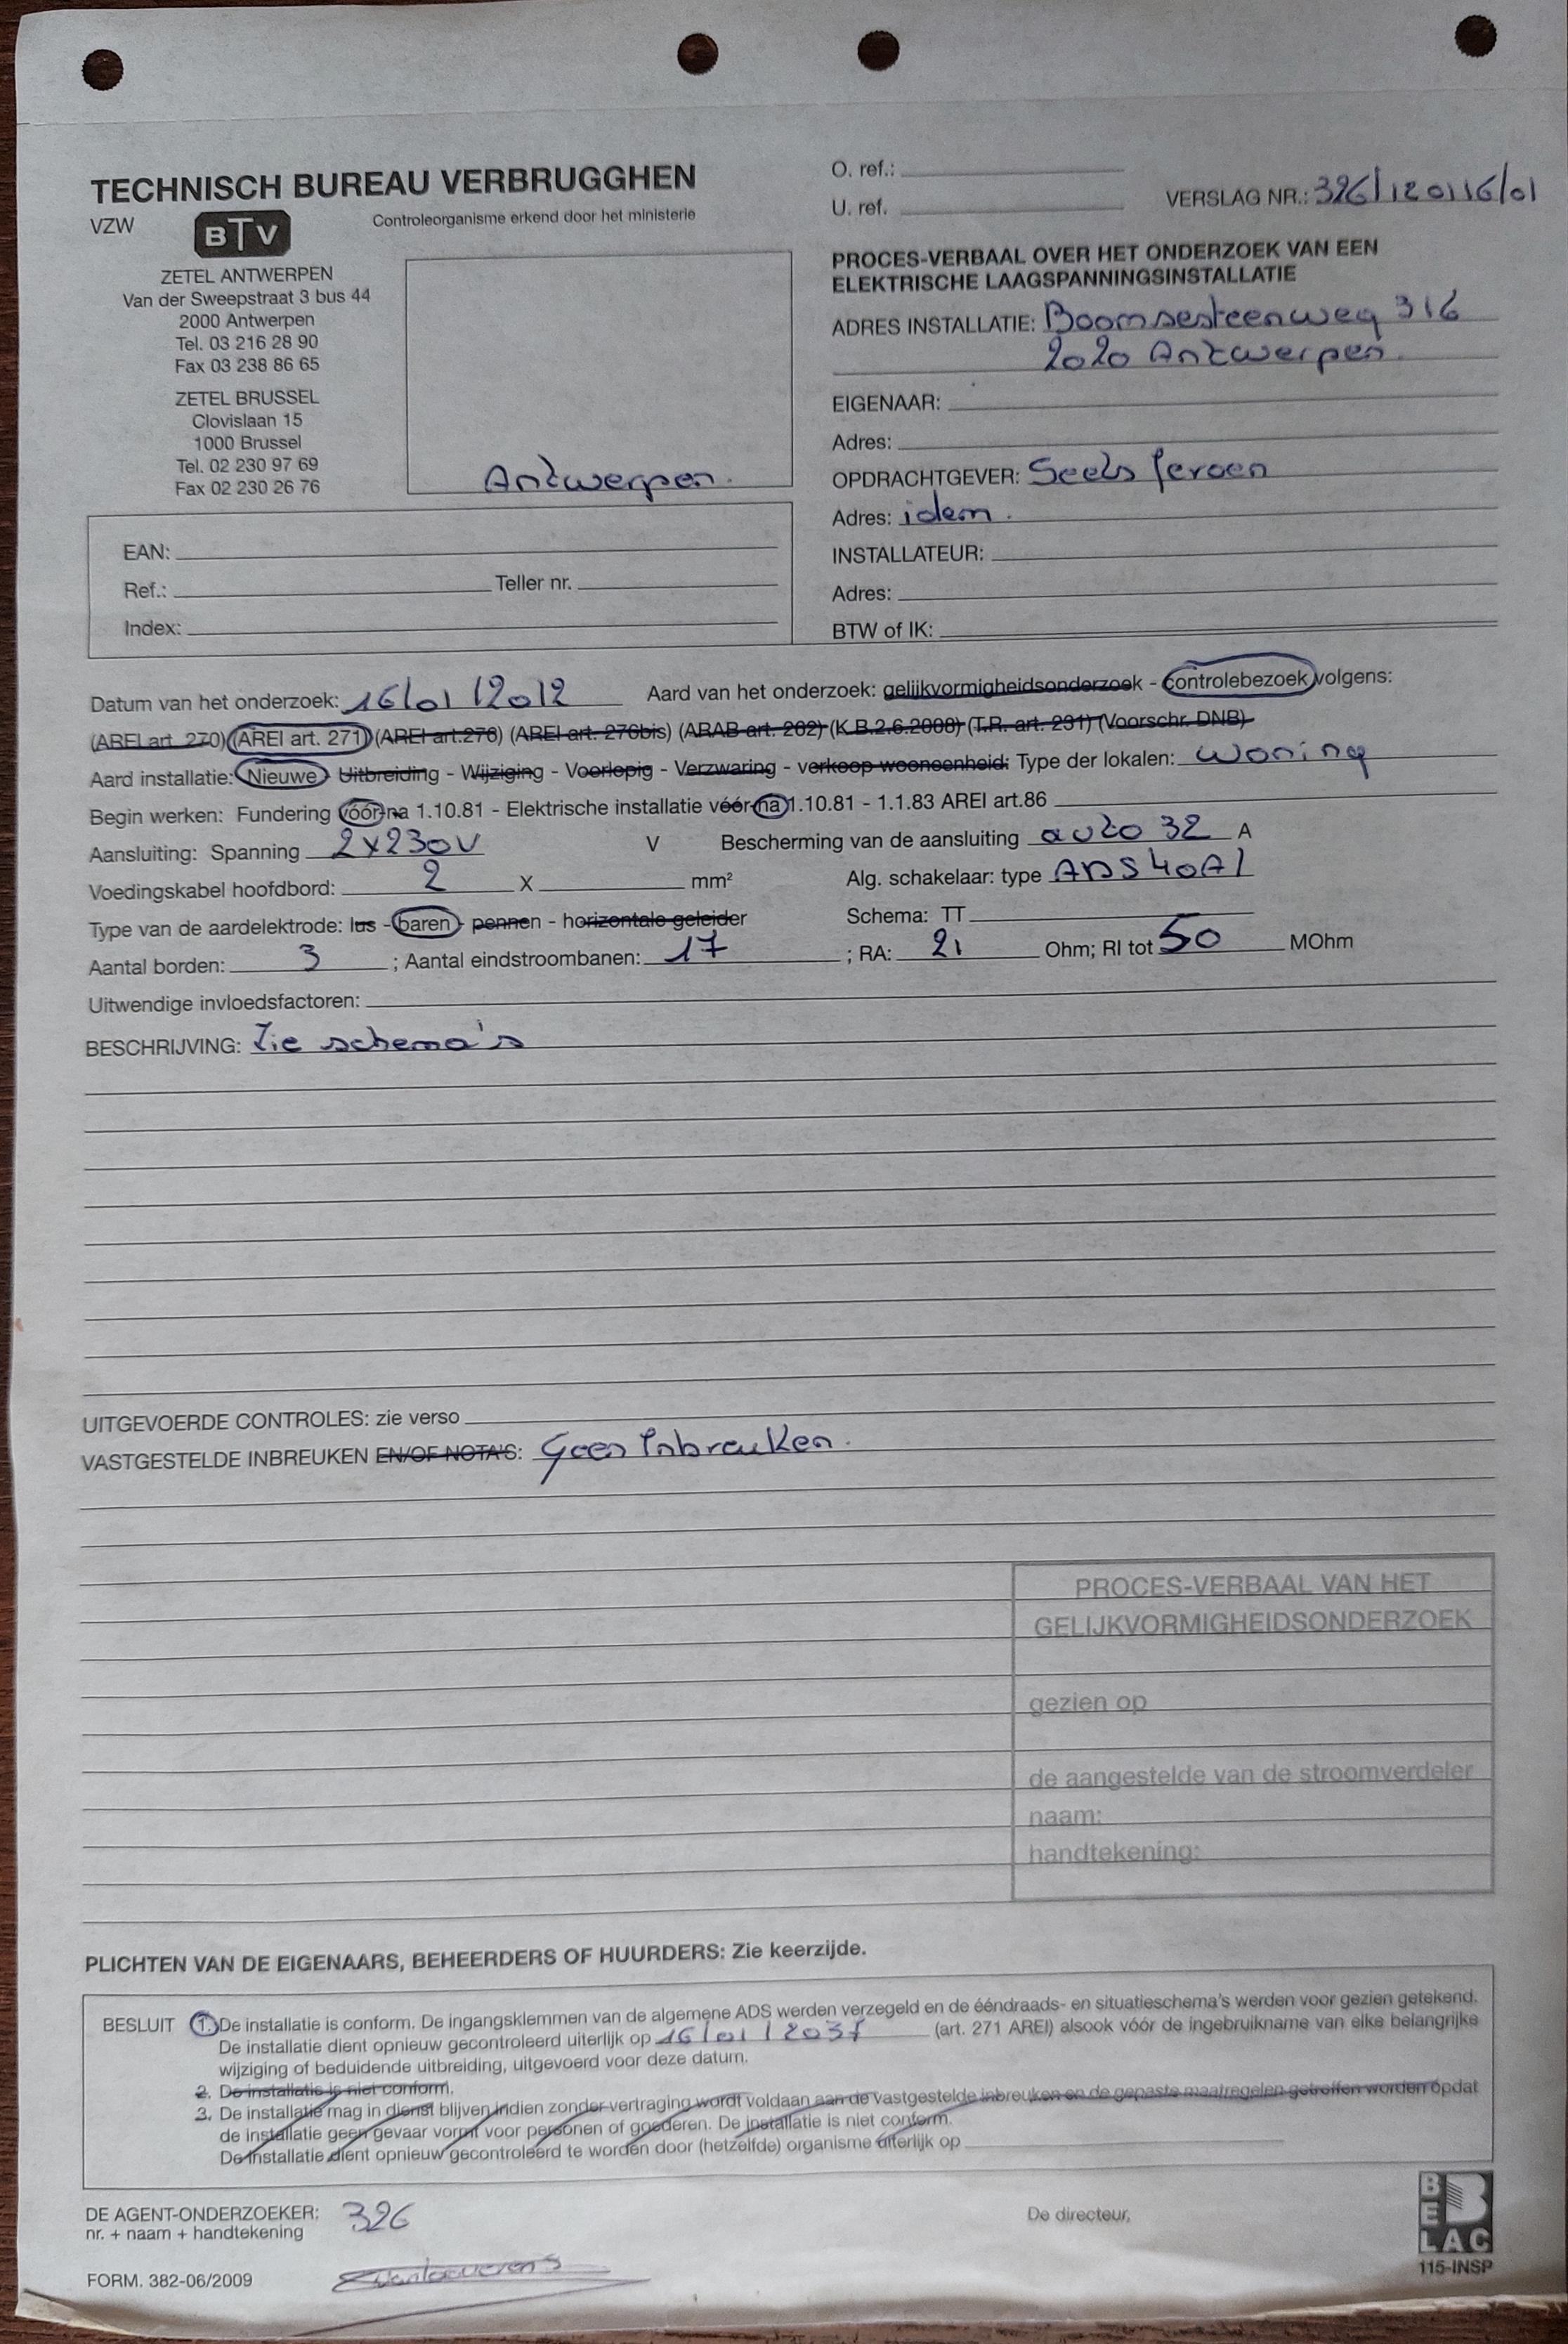 TECHNISCH BUREAU VERBRUGGHEN
VZW
BTV
Controleorganisme erkend door het ministerie
ZETEL ANTWERPEN
Van der Sweepstraat 3 bus 44
2000 Antwerpen
Tel. 03 216 28 90
Fax 03 238 86 65
ZETEL BRUSSEL
Clovislaan 15
1000 Brussel
Tel. 02 230 97 69
Fax 02 230 26 76
Antwerpen.
EAN:
Ref.: Teller nr.
Index:
O. ref.:
U. ref.
VERSLAG NR.: 326/120116/01
PROCES-VERBAAL OVER HET ONDERZOEK VAN EEN
ELEKTRISCHE LAAGSPANNINGSINSTALLATIE
ADRES INSTALLATIE: Boomsesteenweg 316
2020 Antwerpen.
EIGENAAR:
Adres:
OPDRACHTGEVER: Seels Jeroen
Adres: idem.
INSTALLATEUR:
Adres:
BTW of IK:
Datum van het onderzoek: 16/01/2012 Aard van het onderzoek: gelijkvormigheidsonderzoek - controlebezoek volgens:
(AREI art. 270) (AREI art. 271) (AREI art.276) (AREI art. 276bis) (ARAB art. 262) (K.B.2.6.2008) (T.R. art. 231) (Voorschr. DNB)
Aard installatie: Nieuwe - Uitbreiding - Wijziging - Voorlopig - Verzwaring - verkoop wooneenheid: Type der lokalen: woning
Begin werken: Fundering vóór-na 1.10.81 - Elektrische installatie vóór-na 1.10.81 - 1.1.83 AREI art.86
Aansluiting: Spanning 2x230V V Bescherming van de aansluiting auto 32 A
Voedingskabel hoofdbord: 2 X mm² Alg. schakelaar: type ADS 40A/
Type van de aardelektrode: lus - baren - pennen - horizontale geleider Schema: TT
Aantal borden: 3 ; Aantal eindstroombanen: 17 ; RA: 21 Ohm; RI tot 50 MOhm
Uitwendige invloedsfactoren:
BESCHRIJVING: Zie schema's
UITGEVOERDE CONTROLES: zie verso
VASTGESTELDE INBREUKEN EN/OF NOTA'S: Geen Inbreuken.
PROCES-VERBAAL VAN HET
GELIJKVORMIGHEIDSONDERZOEK
gezien op
de aangestelde van de stroomverdeler
naam:
handtekening:
PLICHTEN VAN DE EIGENAARS, BEHEERDERS OF HUURDERS: Zie keerzijde.
BESLUIT 1. De installatie is conform. De ingangsklemmen van de algemene ADS werden verzegeld en de ééndraads- en situatieschema's werden voor gezien getekend.
De installatie dient opnieuw gecontroleerd uiterlijk op 16/01/2037 (art. 271 AREI) alsook vóór de ingebruikname van elke belangrijke
wijziging of beduidende uitbreiding, uitgevoerd voor deze datum.
2. De installatie is niet conform.
3. De installatie mag in dienst blijven indien zonder vertraging wordt voldaan aan de vastgestelde inbreuken en de gepaste maatregelen getroffen worden opdat
de installatie geen gevaar vormt voor personen of goederen. De installatie is niet conform.
De installatie dient opnieuw gecontroleerd te worden door (hetzelfde) organisme uiterlijk op
DE AGENT-ONDERZOEKER: 326
nr. + naam + handtekening
De directeur,
BELAC
115-INSP
FORM. 382-06/2009